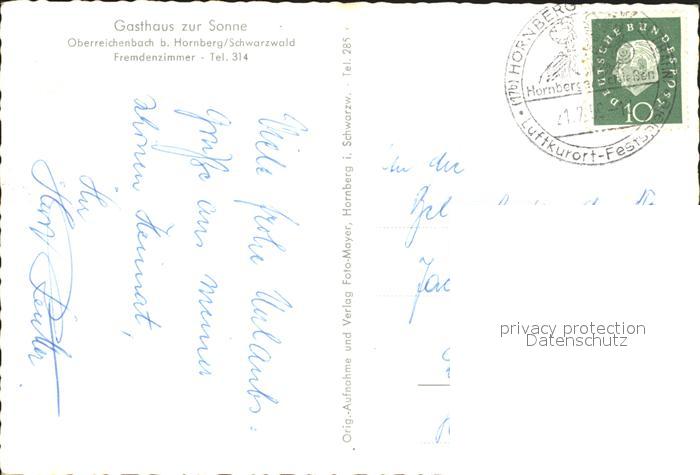 Gasthaus zur Sonne
Oberreichenbach b. Hornberg/Schwarzwald
Fremdenzimmer - Tel. 314
Viele frohe Urlaubs=
grüße aus meiner
schönen Heimat,
Ihr
Orig.-Aufnahme und Verlag Foto-Mayer, Hornberg i. Schwarzw. · Tel. 285
(17b) HORNBERG
Hornberger Schießen
Luftkurort-Festspiele
DEUTSCHE BUNDESPOST
10
An die
privacy protection
Datenschutz